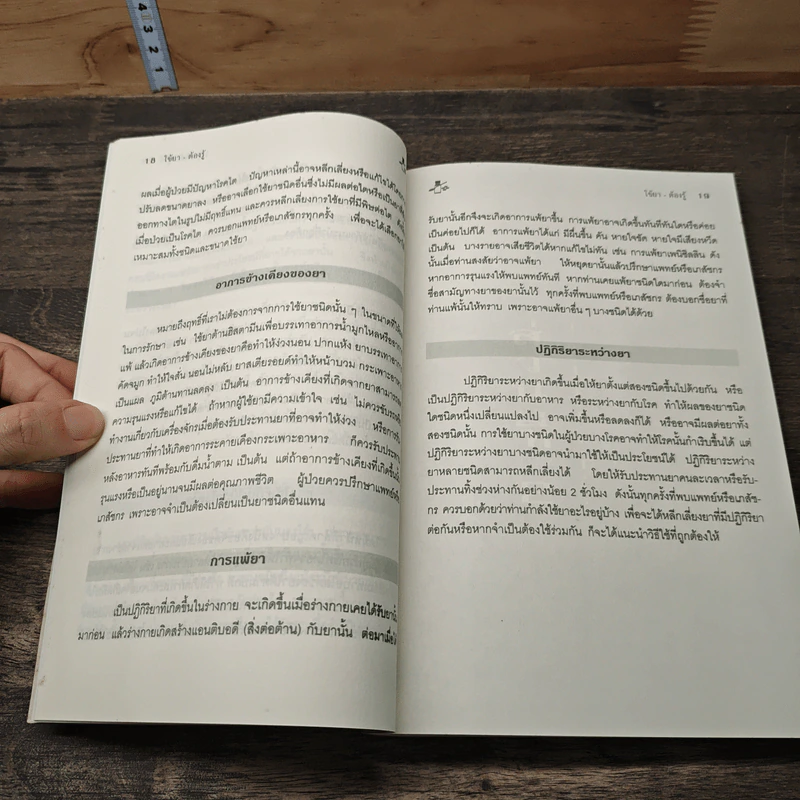 4
3
2
1
18 ใช้ยา - ต้องรู้
ผลเมื่อผู้ป่วยมีปัญหาโรคไต ปัญหาเหล่านี้อาจหลีกเลี่ยงหรือแก้ไขได้โดย
ปรับลดขนาดยาลง หรืออาจเลือกใช้ยาชนิดอื่นซึ่งไม่มีผลต่อไตหรือเป็นยาที่
ออกทางไตในรูปไม่มีฤทธิ์แทน และควรหลีกเลี่ยงการใช้ยาที่มีพิษต่อไต ดังนั้น
เมื่อป่วยเป็นโรคไต ควรบอกแพทย์หรือเภสัชกรทุกครั้ง เพื่อจะได้เลือกยา
เหมาะสมทั้งชนิดและขนาดใช้ยา
อาการข้างเคียงของยา
หมายถึงฤทธิ์ที่เราไม่ต้องการจากการใช้ยาชนิดนั้น ๆ ในขนาดที่ใช้
ในการรักษา เช่น ใช้ยาต้านฮิสตามีนเพื่อบรรเทาอาการน้ำมูกไหลหรืออาการ
แพ้ แล้วเกิดอาการข้างเคียงของยาคือทำให้ง่วงนอน ปากแห้ง ยาบรรเทาอาการ
คัดจมูก ทำให้ใจสั่น นอนไม่หลับ ยาสเตียรอยด์ทำให้หน้าบวม กระเพาะอาหาร
เป็นแผล ภูมิต้านทานลดลง เป็นต้น อาการข้างเคียงที่เกิดจากยาสามารถลด
ความรุนแรงหรือแก้ไขได้ ถ้าหากผู้ใช้ยามีความเข้าใจ เช่น ไม่ควรขับรถหรือ
ทำงานเกี่ยวกับเครื่องจักรเมื่อต้องรับประทานยาที่อาจทำให้ง่วง หรือการรับ
ประทานยาที่ทำให้เกิดอาการระคายเคืองกระเพาะอาหาร ก็ควรรับประทาน
หลังอาหารทันทีพร้อมกับดื่มน้ำตาม เป็นต้น แต่ถ้าอาการข้างเคียงที่เกิดขึ้นนั้น
รุนแรงหรือเป็นอยู่นานจนมีผลต่อคุณภาพชีวิต ผู้ป่วยควรปรึกษาแพทย์หรือ
เภสัชกร เพราะอาจจำเป็นต้องเปลี่ยนเป็นยาชนิดอื่นแทน
การแพ้ยา
เป็นปฏิกิริยาที่เกิดขึ้นในร่างกาย จะเกิดขึ้นเมื่อร่างกายเคยได้รับยานั้น
มาก่อน แล้วร่างกายเกิดสร้างแอนติบอดี (สิ่งต่อต้าน) กับยานั้น ต่อมาเมื่อได้
ใช้ยา - ต้องรู้ 19
รับยานั้นอีกจึงจะเกิดอาการแพ้ยาขึ้น การแพ้ยาอาจเกิดขึ้นทันทีทันใดหรือค่อย
เป็นค่อยไปก็ได้ อาการแพ้ยาได้แก่ มีผื่นขึ้น คัน หายใจขัด หายใจมีเสียงหวีด
เป็นต้น บางรายอาจเสียชีวิตได้หากแก้ไขไม่ทัน เช่น การแพ้ยาเพนิซิลลิน ดัง
นั้นเมื่อท่านสงสัยว่าอาจแพ้ยา ให้หยุดยานั้นแล้วปรึกษาแพทย์หรือเภสัชกร
หากอาการรุนแรงให้พบแพทย์ทันที หากท่านเคยแพ้ยาชนิดใดมาก่อน ต้องจำ
ชื่อสามัญทางยาของยานั้นไว้ ทุกครั้งที่พบแพทย์หรือเภสัชกร ต้องบอกชื่อยาที่
ท่านแพ้นั้นให้ทราบ เพราะอาจแพ้ยาอื่น ๆ บางชนิดได้ด้วย
ปฏิกิริยาระหว่างยา
ปฏิกิริยาระหว่างยาเกิดขึ้นเมื่อให้ยาตั้งแต่สองชนิดขึ้นไปด้วยกัน หรือ
เป็นปฏิกิริยาระหว่างยากับอาหาร หรือระหว่างยากับโรค ทำให้ผลของยาชนิด
ใดชนิดหนึ่งเปลี่ยนแปลงไป อาจเพิ่มขึ้นหรือลดลงก็ได้ หรืออาจมีผลต่อยาทั้ง
สองชนิดนั้น การใช้ยาบางชนิดในผู้ป่วยบางโรคอาจทำให้โรคนั้นกำเริบขึ้นได้ แต่
ปฏิกิริยาระหว่างยาบางชนิดอาจนำมาใช้ให้เป็นประโยชน์ได้ ปฏิกิริยาระหว่าง
ยาหลายชนิดสามารถหลีกเลี่ยงได้ โดยให้รับประทานยาคนละเวลาหรือรับ-
ประทานทิ้งช่วงห่างกันอย่างน้อย 2 ชั่วโมง ดังนั้นทุกครั้งที่พบแพทย์หรือเภสัช-
กร ควรบอกด้วยว่าท่านกำลังใช้ยาอะไรอยู่บ้าง เพื่อจะได้หลีกเลี่ยงยาที่มีปฏิกิริยา
ต่อกันหรือหากจำเป็นต้องใช้ร่วมกัน ก็จะได้แนะนำวิธีใช้ที่ถูกต้องให้